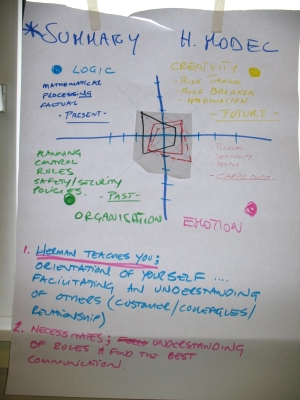 *SUMMARY H. MODEL
LOGIC
MATHEMATICAL
PROCESSING
FACTUAL
- PRESENT -
CREATIVITY
- RISK TAKING
- RULE BREAKER
- IMAGINATION
- FUTURE -
PLANNING
CONTROL
RULES
SAFETY/SECURITY
POLICIES.
- PAST -
ORGANISATION
EMOTION
1. HERMAN TEACHES YOU;
ORIENTATION OF YOURSELF ....
FACILITATING AN UNDERSTANDING
OF OTHERS (CUSTOMER/COLLEAGUES/
RELATIONSHIP)
2. NECESSITATES; UNDERSTANDING
OF RULES & FIND THE BEST
COMMUNICATION.